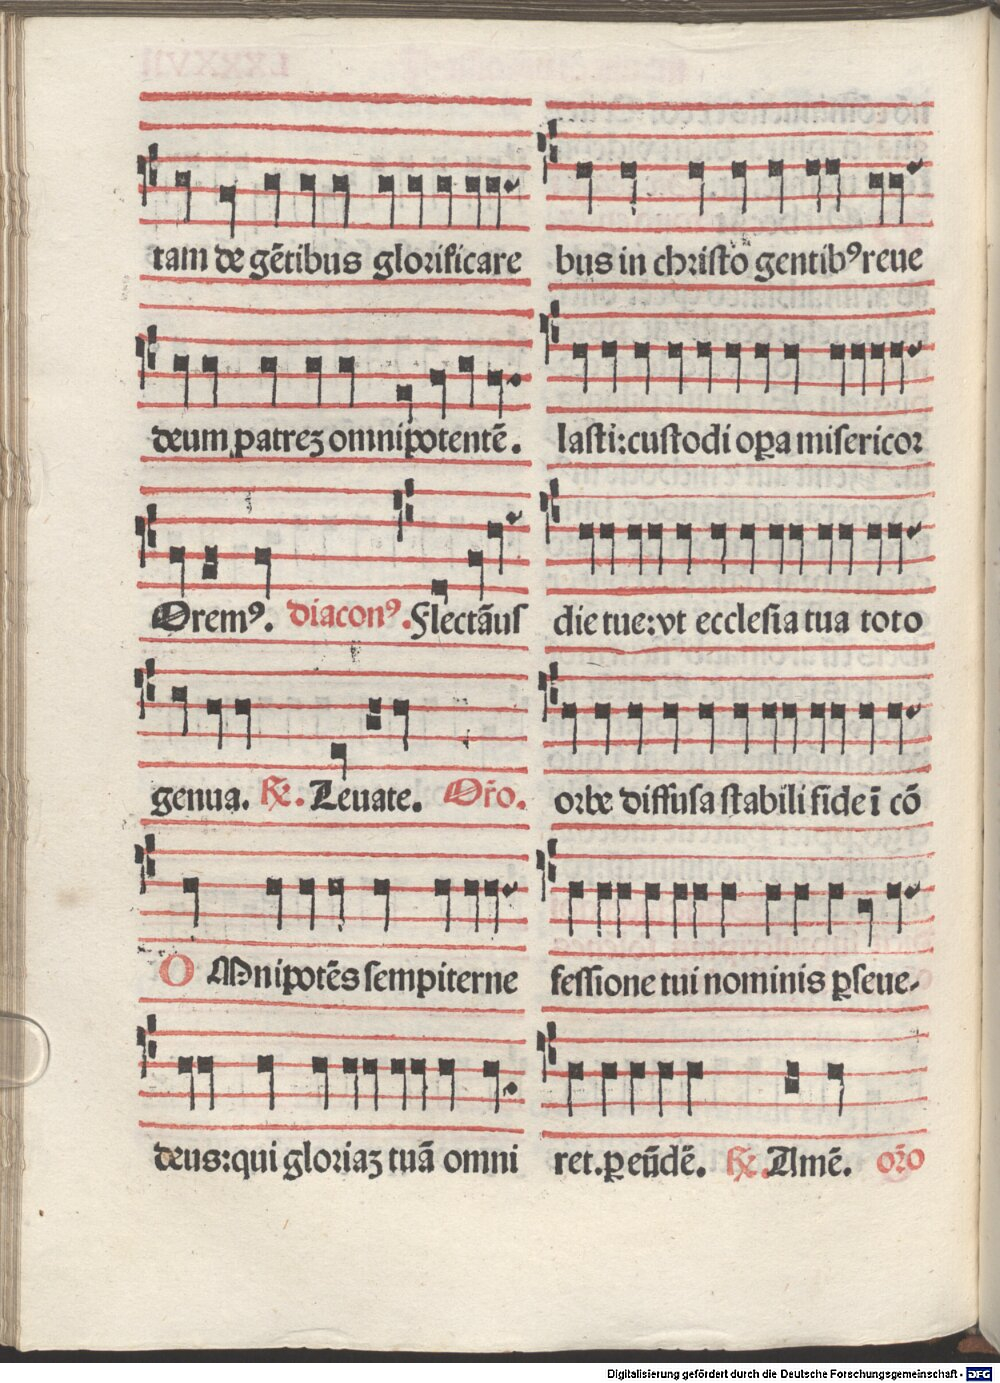 tam de gẽtibus glorificare
deum patreʒ omnipotentẽ.
Oremꝰ. diaconꝰ. Flectãus
genua. ℟. Leuate. Or̃o.
OMnipotẽs sempiterne
deus: qui gloriaʒ tuã omni
bus in christo gentibꝰ reue
lasti: custodi oꝑa misericor
die tue: vt ecclesia tua toto
orbe diffusa stabili fide ĩ cõ
fessione tui nominis ꝑseue-
ret. ꝑ eũdẽ. ℟. Amẽ. or̃o
Digitalisierung gefördert durch die Deutsche Forschungsgemeinschaft - DFG